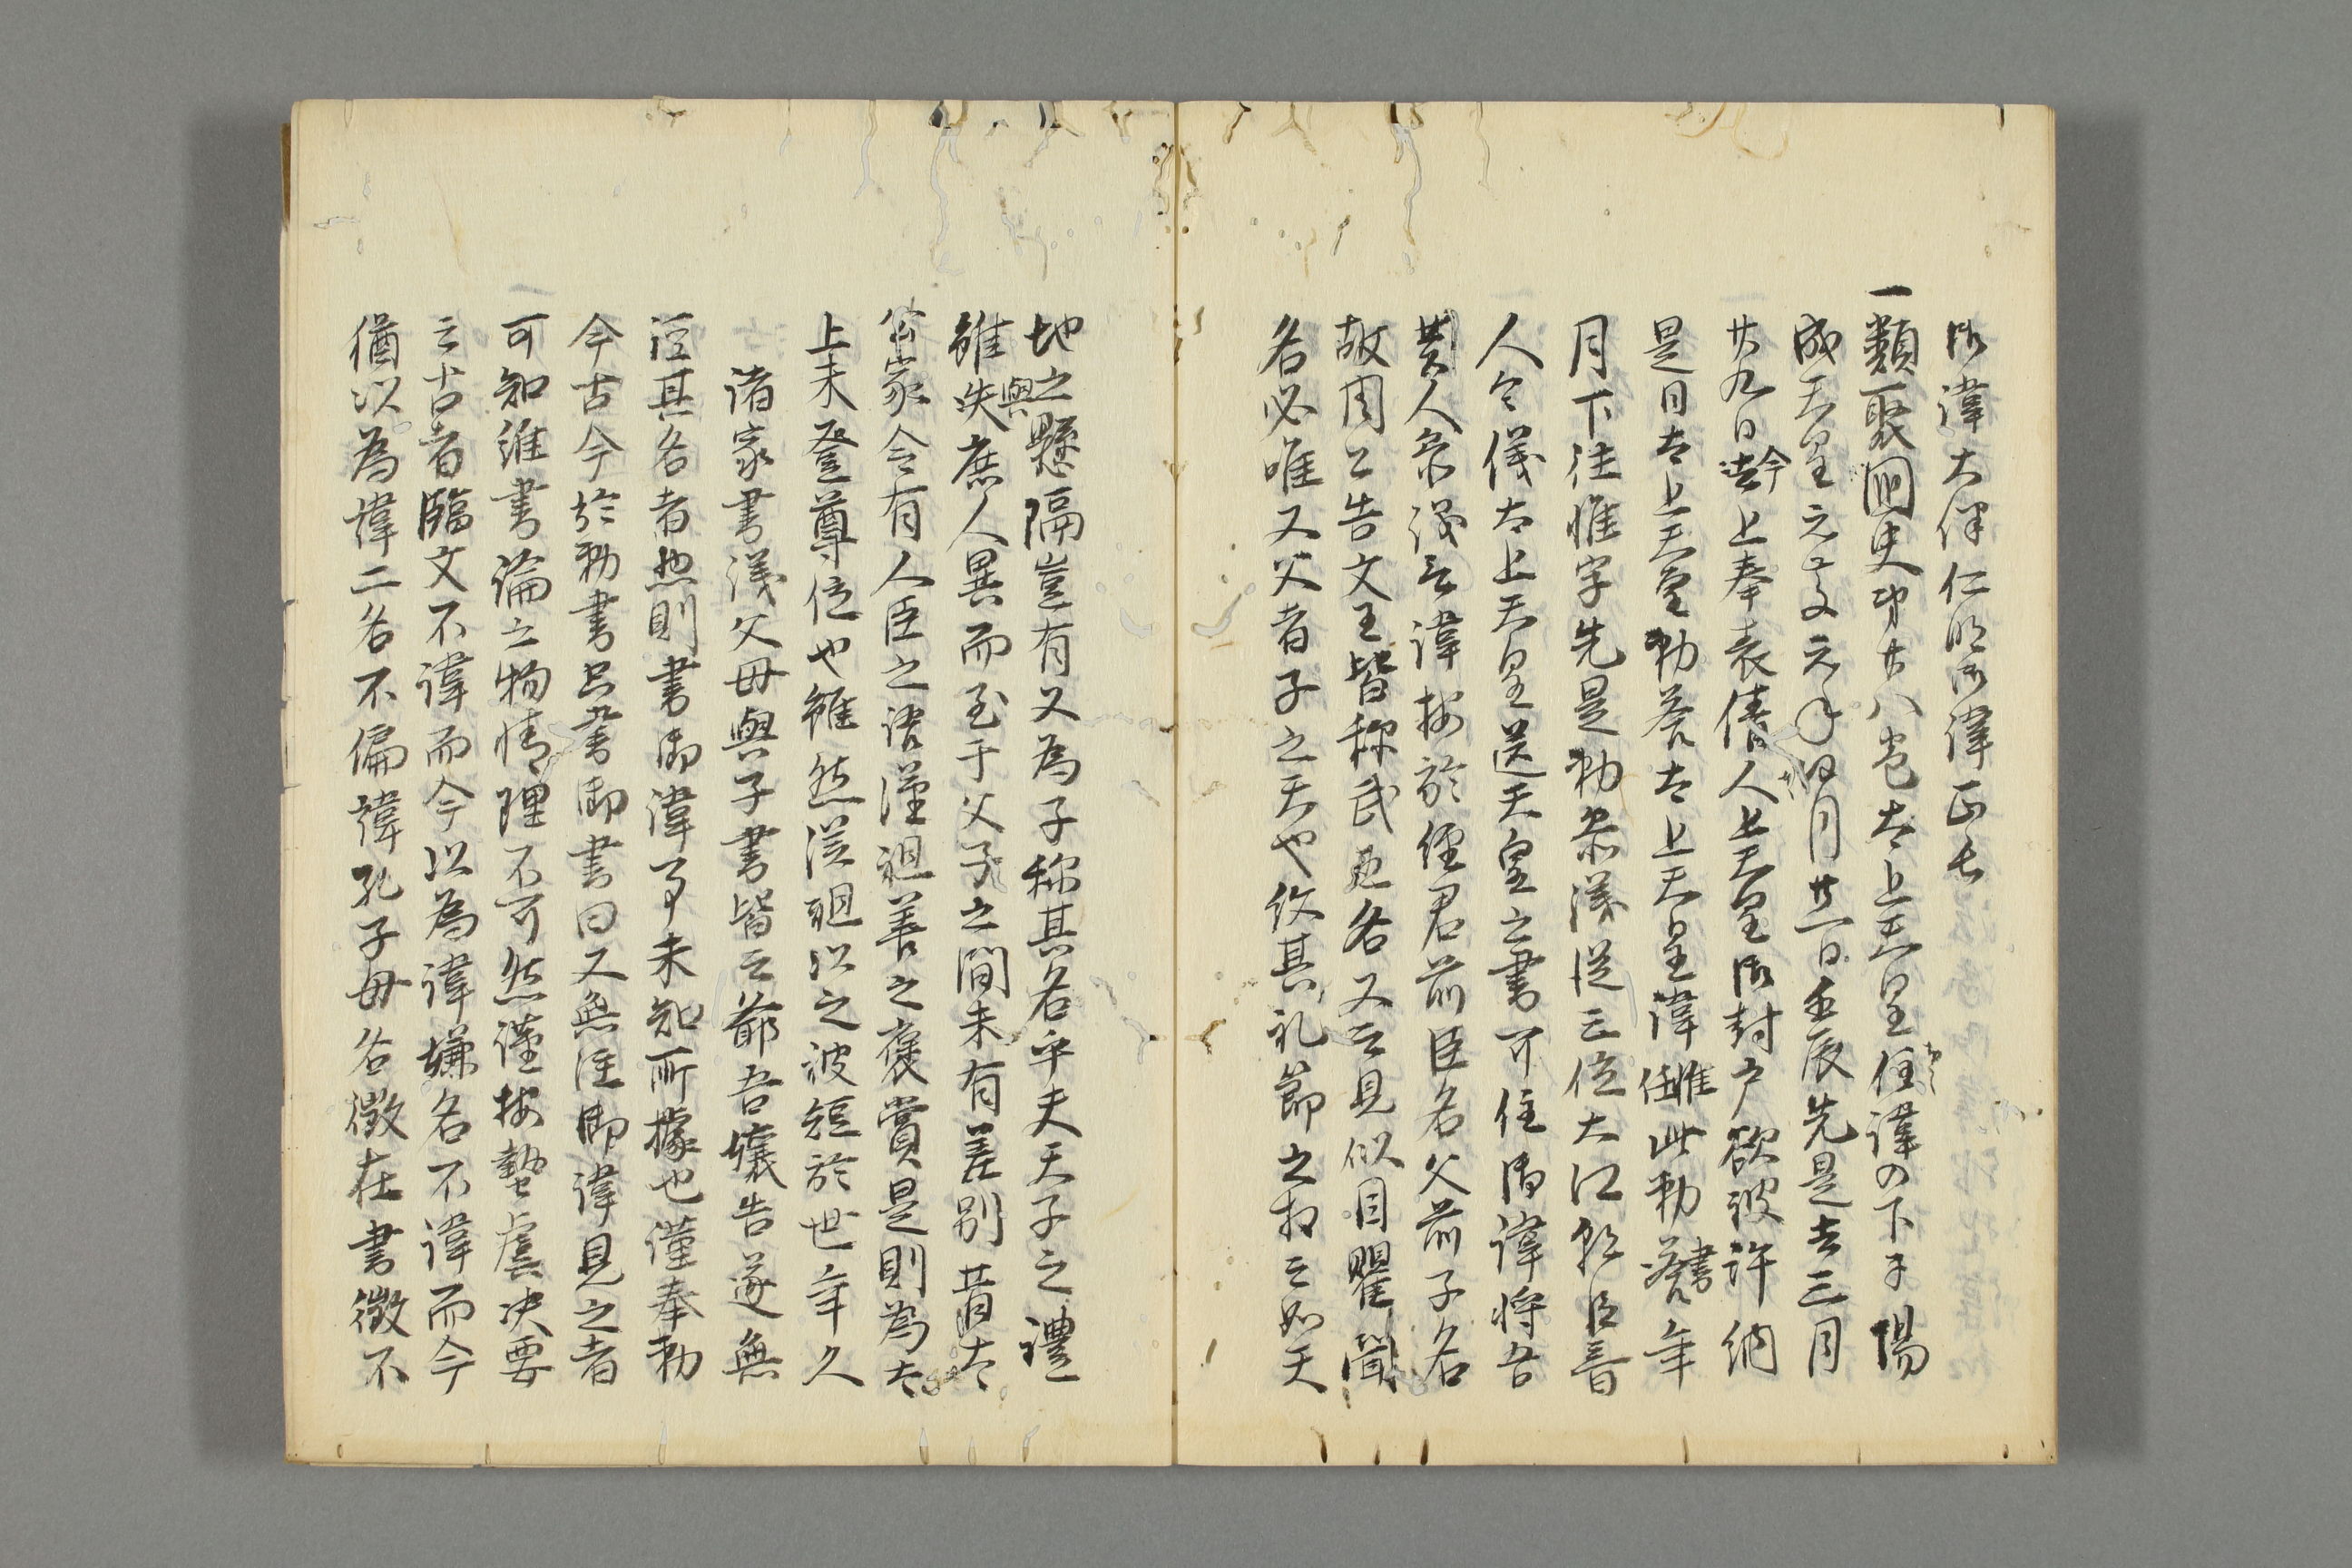 御諱大伴仁明御諱正良
一類聚国史第廿八巻太上天皇 住諱の下ニ陽
成天皇元慶元年四月廿一日壬辰先是去三月
廿九日今上奉表倩人上天皇御封戸欲被許納
是日太上天皇勅荅太上天皇諱惟此勅荅書年
月下注惟字先是勅参議従三位大江朝臣音
人今儀太上天皇送天皇之書可注御諱将否
音人参議云諱揆於經君前臣名父前子名
故周公告文王皆称武王名又云見似目瞿聞
名必唯又父者子之天也伇其礼節之扣云如天
地之懸隔豈有又為子称其名乎夫天子之禮
雖与庶人異而至于父子之間未有差別昔太
公家令有人臣之語漢祖善之褒賞是則為太
上未登尊位也雖然漢祖以之被短於世年久
諸家書儀父母與子書皆云爺吾孃告遂無
注其名者然則書御諱事未知所據也謹奉勅
今古今於勅書只書御書曰又無注御諱見之者
可知雖書論之物情理不可然謹按摯虞决要
云古者臨文不諱而今以為諱嫌名不諱而今
猶以為諱二名不偏諱孔子母名徴在書徴不